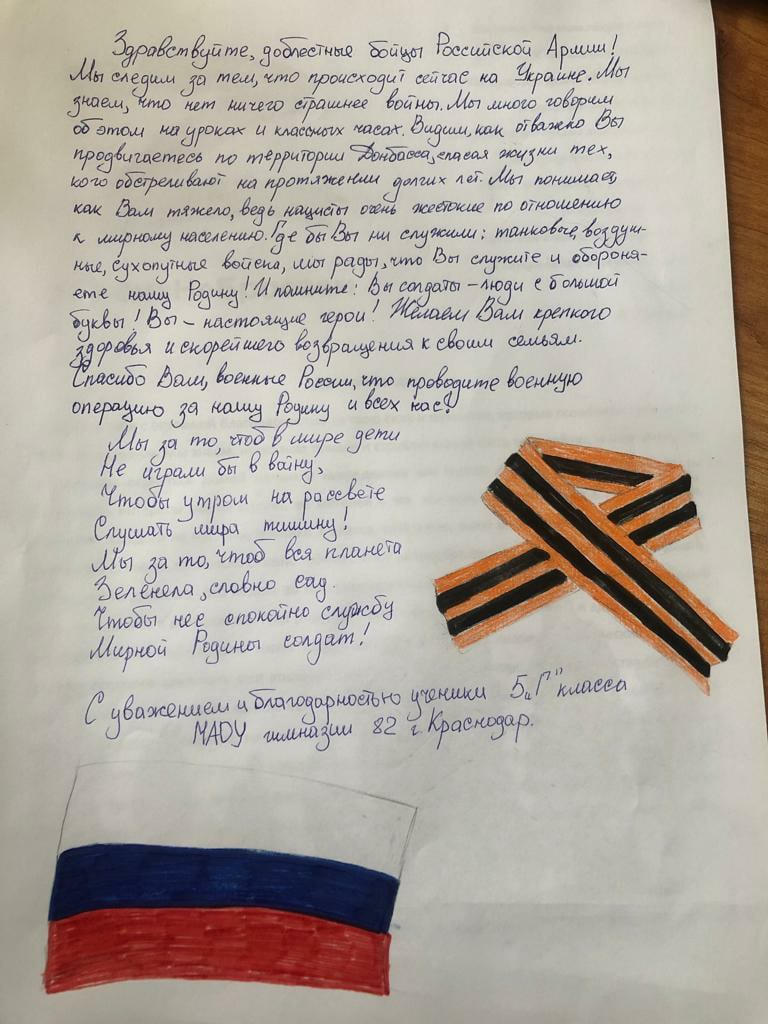 Здравствуйте, доблестные бойцы Российской Армии!
Мы следим за тем, что происходит сейчас на Украине. Мы
знаем, что нет ничего страшнее войны. Мы много говорим
об этом на уроках и классных часах. Видим, как отважно Вы
продвигаетесь по территории Донбасса, спасая жизни тех,
кого обстреливают на протяжении долгих лет. Мы понимаем,
как Вам тяжело, ведь нацисты очень жестокие по отношению
к мирному населению. Где бы Вы ни служили: танковые, воздуш-
ные, сухопутные войска, мы рады, что Вы служите и обороня-
ете нашу Родину! И помните: Вы солдаты – люди с большой
буквы! Вы – настоящие герои! Желаем Вам крепкого
здоровья и скорейшего возвращения к своим семьям.
Спасибо Вам, военные России, что проводите военную
операцию за нашу Родину и всех нас!
Мы за то, чтоб в мире дети
Не играли бы в войну,
Чтобы утром на рассвете
Слушать мира тишину!
Мы за то, чтоб вся планета
Зеленела, словно сад.
Чтобы нёс спокойно службу
Мирной Родины солдат!
С уважением и благодарностью ученики 5 „Г" класса
МАОУ гимназии 82 г. Краснодар.